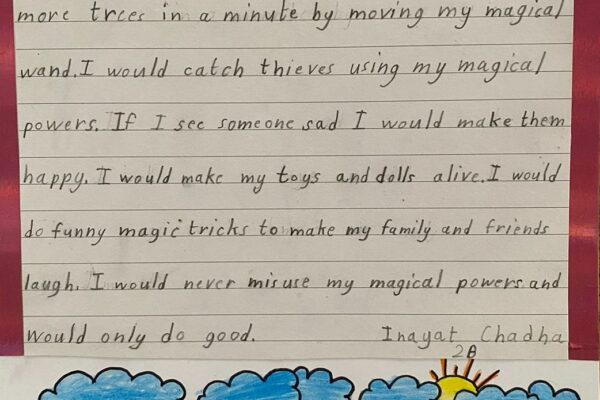 more trees in a minute by moving my magical
wand. I would catch thieves using my magical
powers. If I see someone sad I would make them
happy. I would make my toys and dolls alive. I would
do funny magic tricks to make my family and friends
laugh. I would never misuse my magical powers and
would only do good. Inayat Chadha
2B